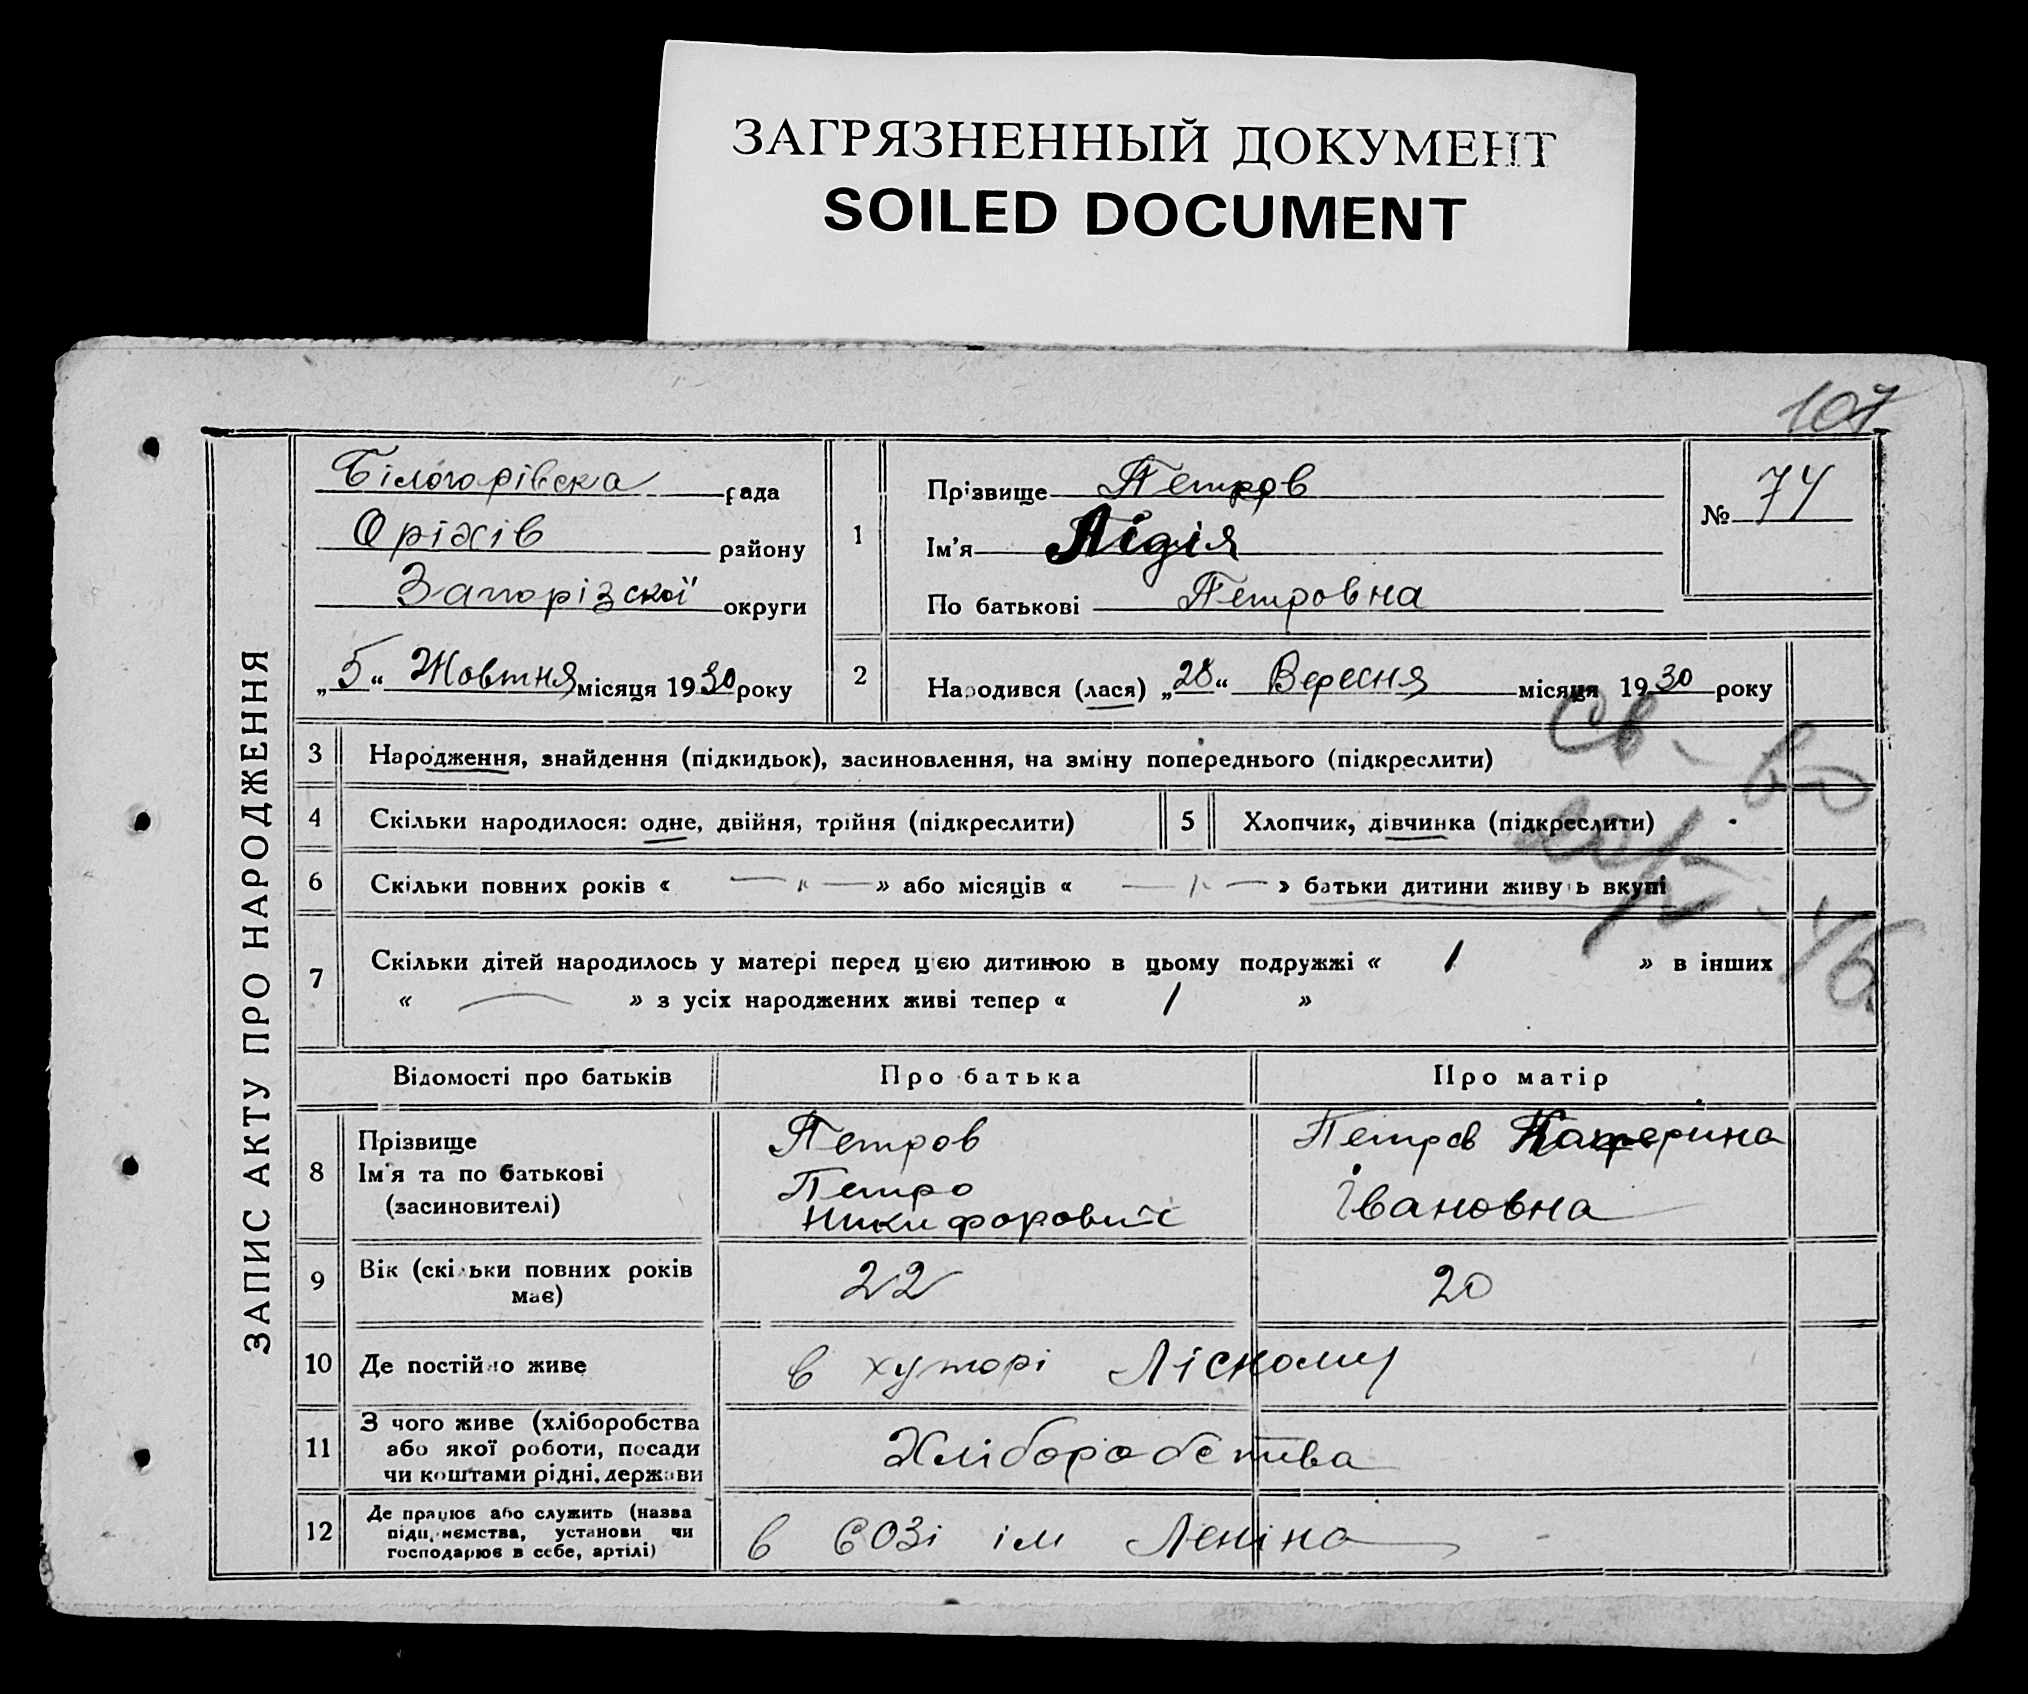 ЗАГРЯЗНЕННЫЙ ДОКУМЕНТ
SOILED DOCUMENT
107
ЗАПИС АКТУ ПРО НАРОДЖЕННЯ
Білогорівска рада
Оріхів району
Запорізскої округи
„5“ Жовтня місяця 1930 року
1
Прізвище Петров
Ім'я Лідія
По батькові Петровна
№ 74
2 Народився (лася) „28“ Вересня місяця 1930 року
3 Народження, знайдення (підкидьок), засиновлення, на зміну попереднього (підкреслити)
4 Скільки народилося: одне, двійня, трійня (підкреслити)
5 Хлопчик, дівчинка (підкреслити)
6 Скільки повних років « — „ — » або місяців « — „ — » батьки дитини живуть вкупі
7 Скільки дітей народилось у матері перед цією дитиною в цьому подружжі « 1 » в інших
« — » з усіх народжених живі тепер « 1 »
Св-во
Відомості про батьків Про батька Про матір
8 Прізвище
Ім'я та по батькові
(засиновителі)
Петров
Петро
Никифорович
Петров Катерина
Івановна
9 Вік (скільки повних років
має)
22 20
10 Де постійно живе в хуторі Ліскому
11 З чого живе (хліборобства
або якої роботи, посади
чи коштами рідні, держави
Хліборобства
12 Де працює або служить (назва
підприємства, установи чи
господарює в себе, артілі)
в СОЗі ім Леніна